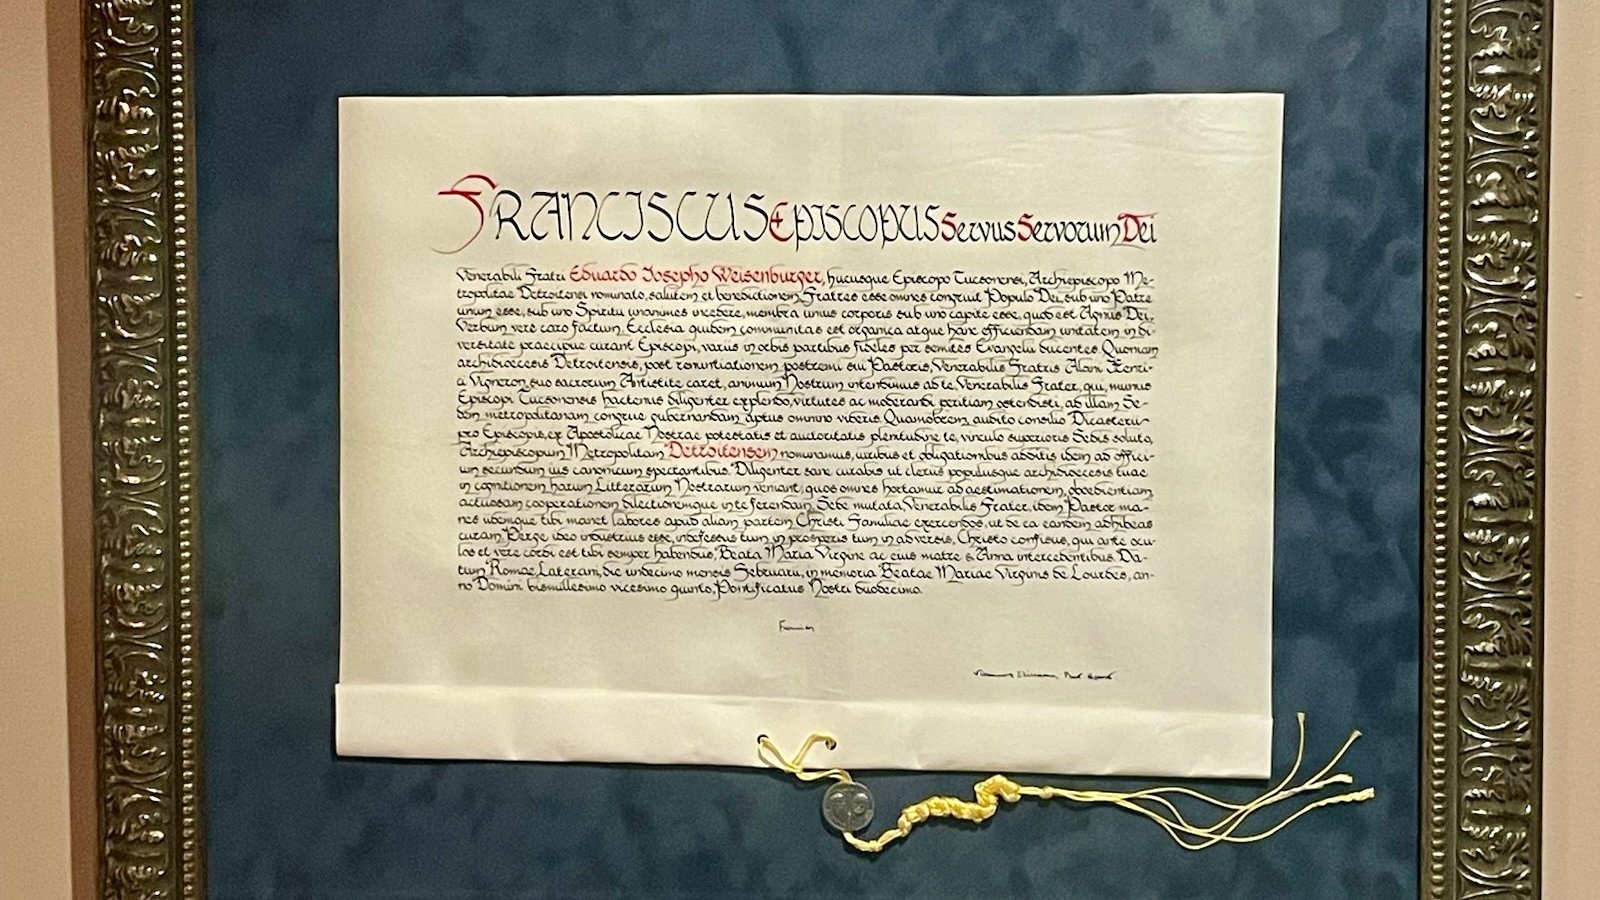 FRANCISCUS EPISCOPUS Servus Servorum Dei
Venerabili Fratri Eduardo Iosepho Weisenburger, hucusque Episcopo Tucsonensi, Archiepiscopo Me-
tropolitae Detroitensi nominato, salutem et benedictionem. Fratres esse omnes congruit Populo Dei, sub uno Patre
unum esse, sub uno Spiritu unanimes incedere, membra unius corporis sub uno capite esse, quod est Agnus Dei,
Verbum vere caro factum. Ecclesia quidem communitas est organica atque hanc efficiendam unitatem in di-
versitate praecipue curant Episcopi, variis in orbis partibus fideles per semites Evangelii ducentes. Quoniam
archidioecesis Detroitensis, post renuntiationem postremi sui Pastoris, Venerabilis Fratris Alani Henri-
ci Vigneron, suo sacrorum Antistite caret, animum Nostrum intendimus ad te, Venerabilis Frater, qui, munus
Episcopi Tucsonensis hactenus diligenter explendo, virtutes ac moderandi peritiam ostendisti, ad illam Se-
dem metropolitanam congrue gubernandam aptus omnino videris. Quamobrem, audito consilio Dicasterii
pro Episcopis, ex Apostolicae Nostrae potestatis et auctoritatis plenitudine te, vinculo superioris Sedis soluto,
Archiepiscopum Metropolitam Detroitensem nominamus, iuribus et obligationibus additis idem ad offici-
um secundum ius canonicum spectantibus. Diligenter sane curabis ut clerus populusque archidioecesis tuae
in cognitionem harum Litterarum Nostrarum veniant, quos omnes hortamur ad aestimationem, oboedientiam,
actuosam cooperationem dilectionemque in te ferendam. Sede mutata, Venerabilis Frater, idem Pastor ma-
nes idemque tibi manet labores apud aliam partem Christi Familiae exercendos, ut de ea eandem adhibeas
curam. Perge ideo industrius esse, indefessus tum in prosperis tum in adversis, Christo confisus, qui ante ocu-
los et vere cordi est tibi semper habendus, Beata Maria Virgine ac eius matre s. Anna intercedentibus. Da-
tum Romae, Laterani, die undecimo mensis Februarii, in memoria Beatae Mariae Virginis de Lourdes, an-
no Domini bismillesimo vicesimo quinto, Pontificatus Nostri duodecimo.
Franciscus